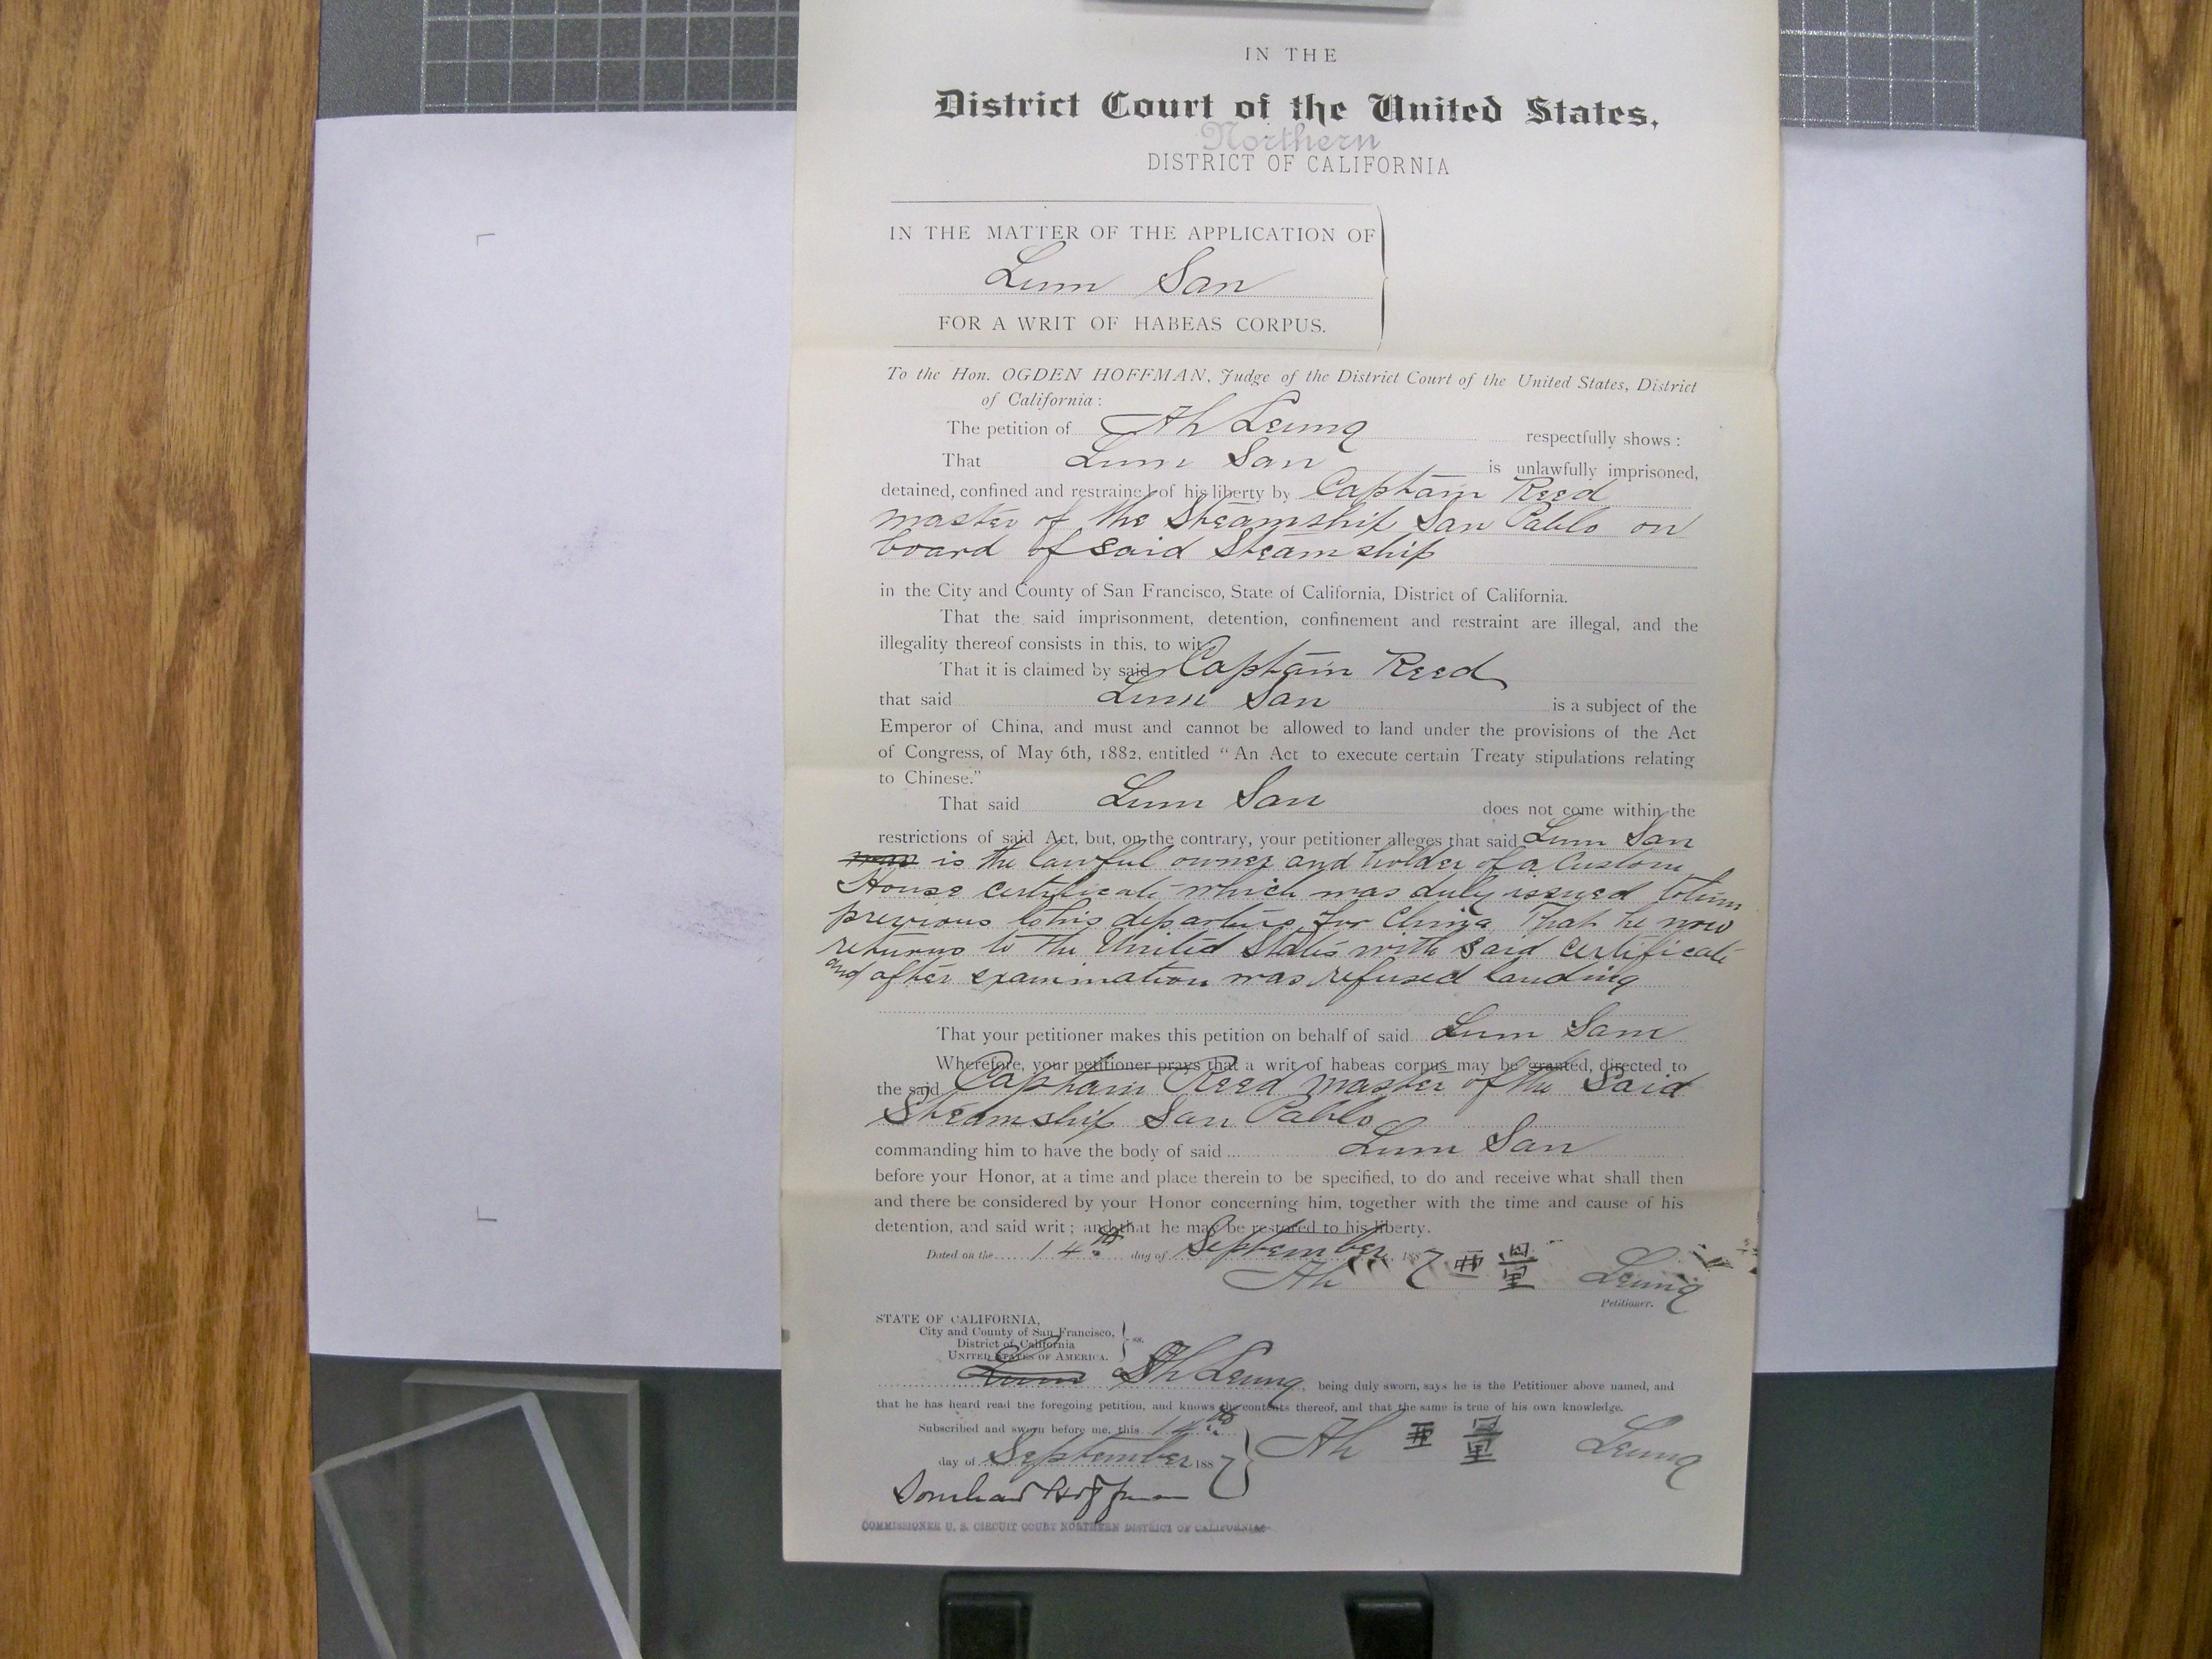 IN THE
District Court of the United States,
Northern
DISTRICT OF CALIFORNIA
IN THE MATTER OF THE APPLICATION OF
Lum San
FOR A WRIT OF HABEAS CORPUS.
To the Hon. OGDEN HOFFMAN, Judge of the District Court of the United States, District
of California:
The petition of Ah Leung respectfully shows:
That Lum San is unlawfully imprisoned,
detained, confined and restrained of his liberty by Captain Reed
master of the Steamship San Pablo on
board of said Steamship
in the City and County of San Francisco, State of California, District of California.
That the said imprisonment, detention, confinement and restraint are illegal, and the
illegality thereof consists in this, to wit
That it is claimed by said Captain Reed
that said Lum San is a subject of the
Emperor of China, and must and cannot be allowed to land under the provisions of the Act
of Congress, of May 6th, 1882, entitled "An Act to execute certain Treaty stipulations relating
to Chinese."
That said Lum San does not come within the
restrictions of said Act, but, on the contrary, your petitioner alleges that said Lum San
is the lawful owner and holder of a Custom
House certificate which was duly issued to him
previous to his departure for China That he now
returns to the United States with said certificate
and after examination was refused landing
That your petitioner makes this petition on behalf of said Lum Sam
Wherefore, your petitioner prays that a writ of habeas corpus may be granted, directed to
the said Captain Reed master of the Said
Steamship San Pablo
commanding him to have the body of said Lum San
before your Honor, at a time and place therein to be specified, to do and receive what shall then
and there be considered by your Honor concerning him, together with the time and cause of his
detention, and said writ; and that he may be restored to his liberty.
Dated on the 14th day of September 1887
Ah 亞 Leung
Petitioner.
STATE OF CALIFORNIA,
City and County of San Francisco,
District of California
UNITED STATES OF AMERICA.
ss.
Ah Leung, being duly sworn, says he is the Petitioner above named, and
that he has heard read the foregoing petition, and knows the contents thereof, and that the same is true of his own knowledge.
Subscribed and sworn before me, this 14th
day of September 1887
Ah 亞 Leung
COMMISSIONER U. S. CIRCUIT COURT NORTHERN DISTRICT OF CALIFORNIA